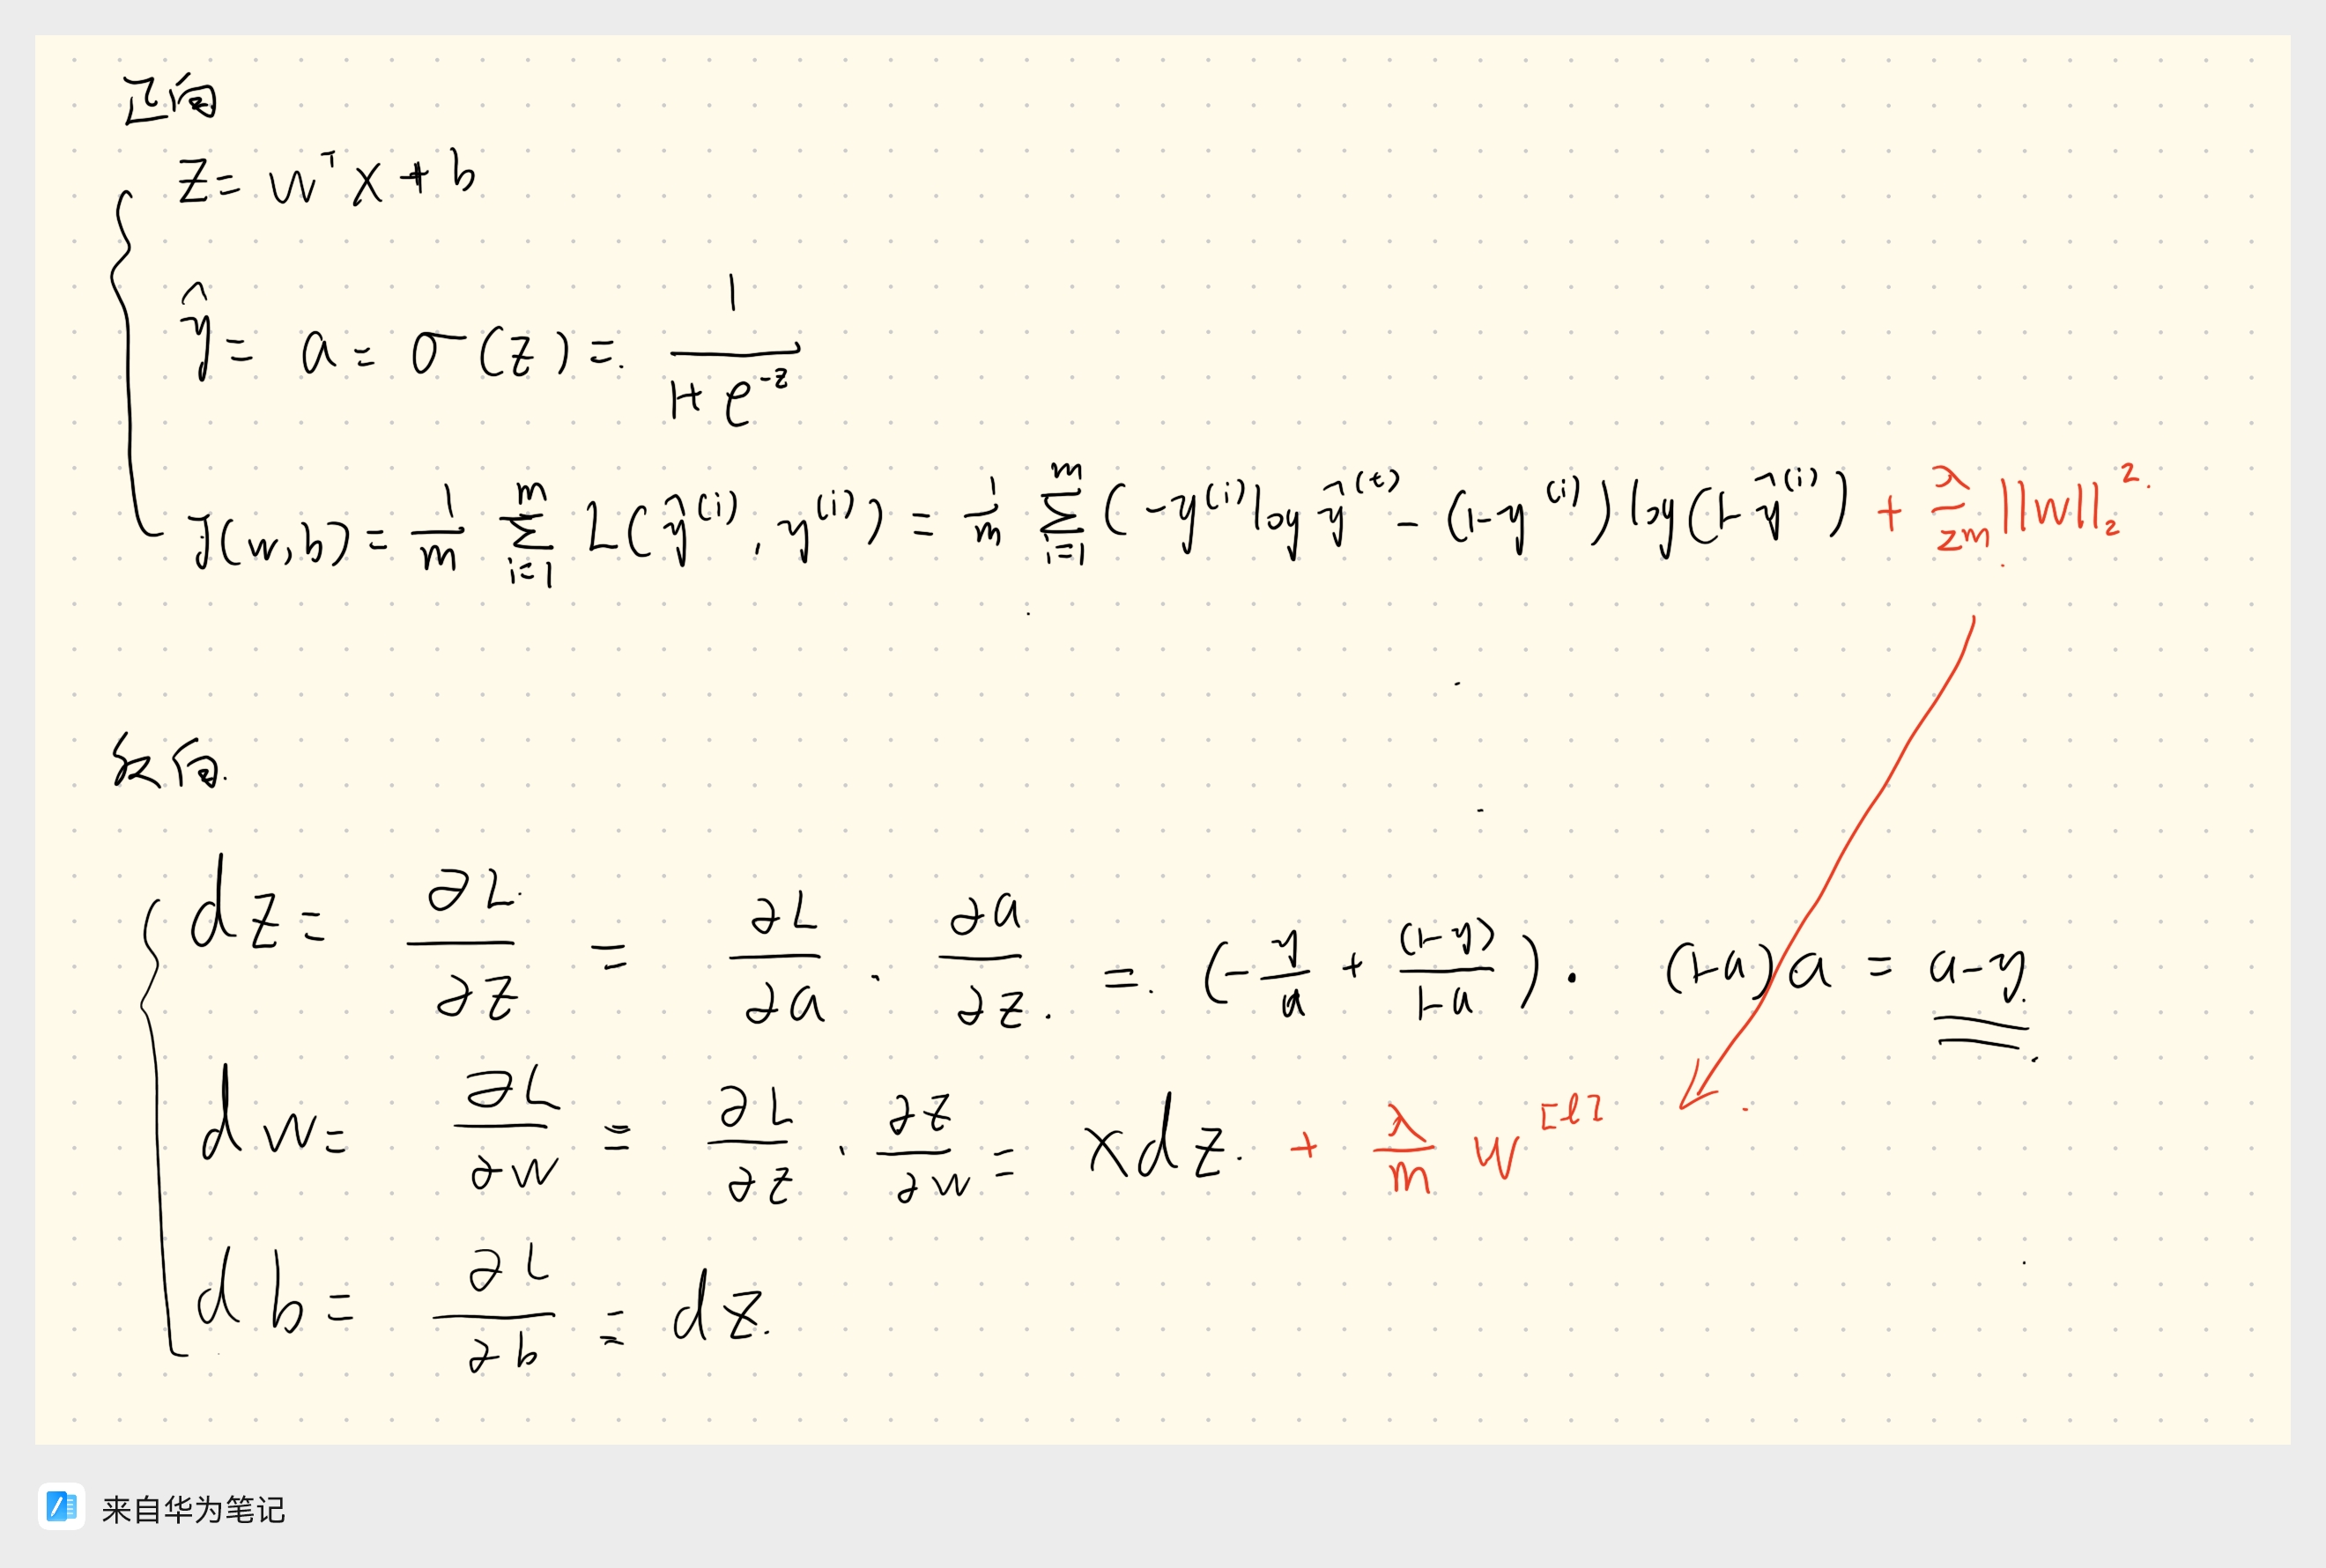 正向
z = w^T x + b
ŷ = a = σ(z) = 1/(1+e^{-z})
J(w,b) = 1/m Σ_{i=1}^{m} L(ŷ^{(i)}, y^{(i)}) = 1/m Σ_{i=1}^{m} (-y^{(i)} log ŷ^{(i)} - (1-y^{(i)}) log(1-ŷ^{(i)})) + λ/2m ||w||_2^2.
反向.
dz = ∂L/∂z = ∂L/∂a · ∂a/∂z. = (-y/a + (1-y)/(1-a)) · (1-a)a = a-y.
dw = ∂L/∂w = ∂L/∂z · ∂z/∂w = xdz. + λ/m w^{[l]}
db = ∂L/∂b = dz.
来自华为笔记